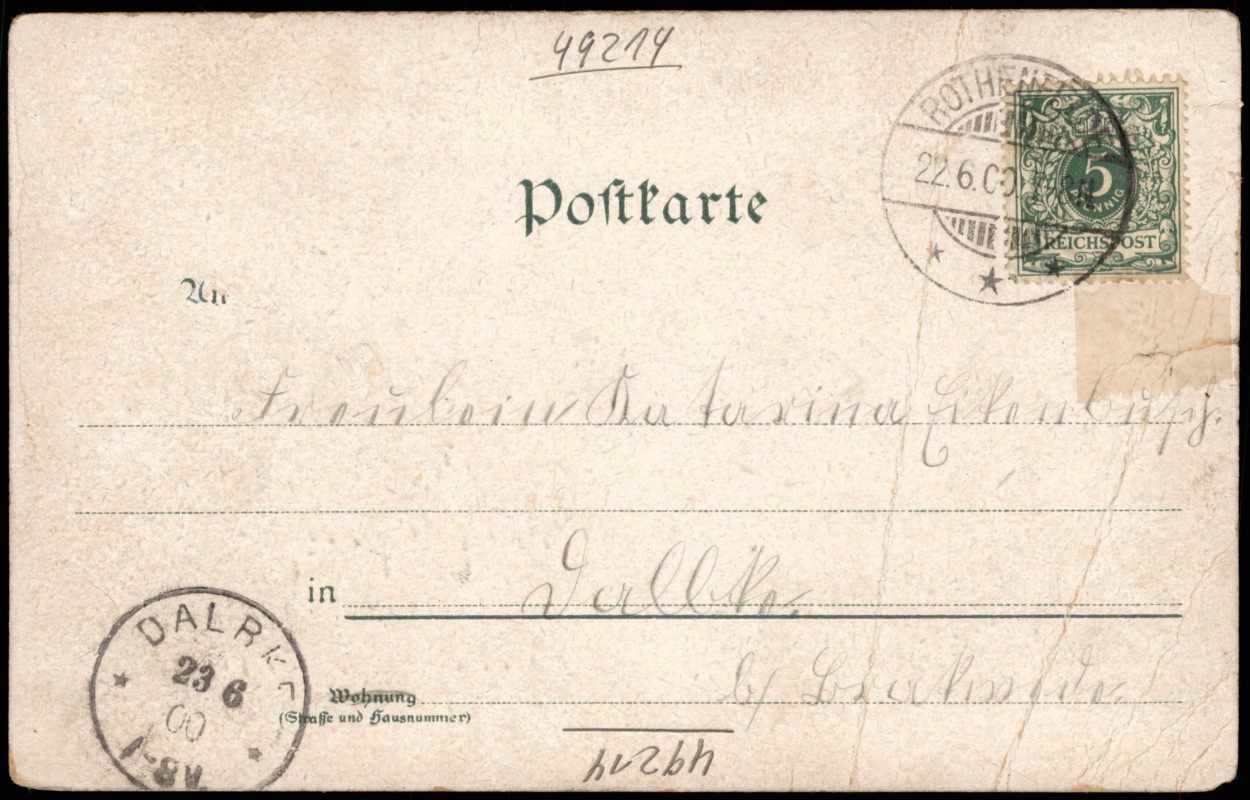 49214
Postkarte
ROTHENFELDE
22.6.00
5
PFENNIG
REICHSPOST
An
Fräulein Katarina Eikenbusch.
in Dalbke.
b/ Brakwede.
Wohnung
(Straße und Hausnummer)
DALBKE
23 6
00
7-8V.
49214